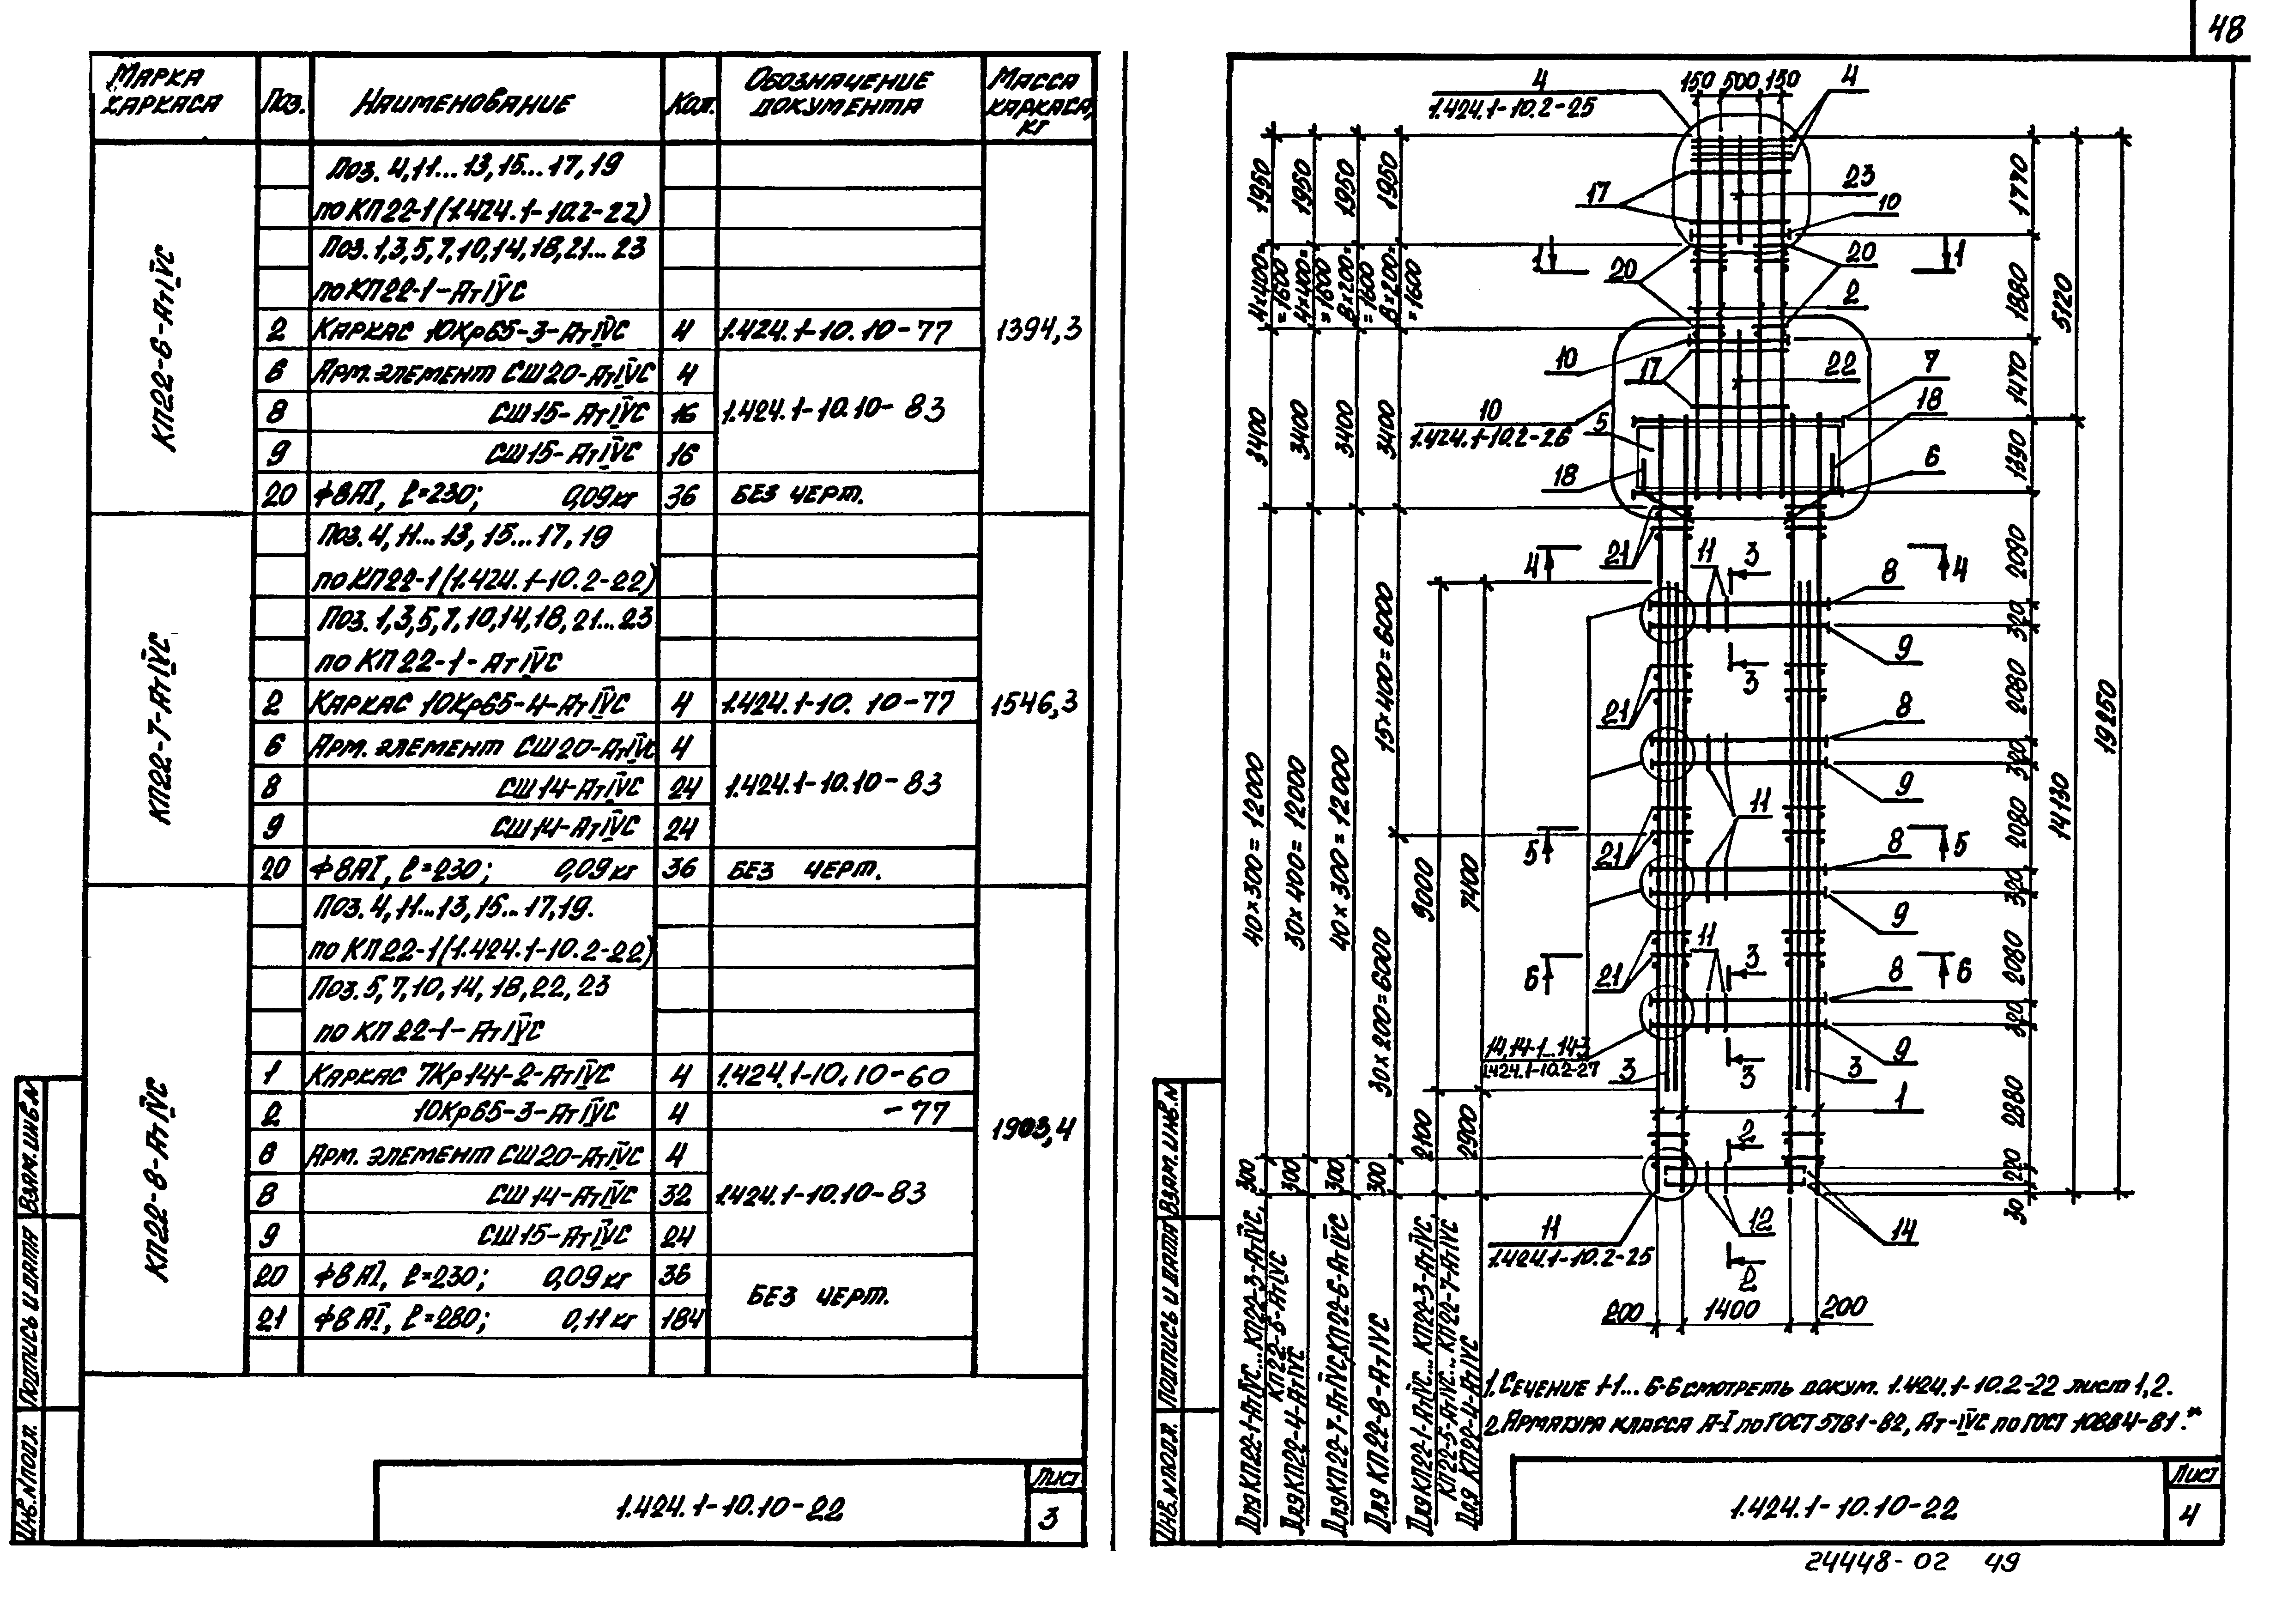 48
Марка каркаса
Поз.
Наименование
Кол.
Обозначение документа
Масса каркаса, кг
КП22-6-АтIVС
Поз. 4,11...13,15...17,19
по КП22-1 (1.424.1-10.2-22)
Поз. 1,3,5,7,10,14,18,21...23
по КП22-1-АтIVС
2 Каркас 10Кр65-3-АтIVС 4 1.424.1-10.10-77 1394,3
6 Арм. элемент СШ20-АтIVС 4
8 СШ15-АтIVС 16 1.424.1-10.10-83
9 СШ15-АтIVС 16
20 ф8АI, ℓ=230; 0,09кг 36 без черт.
КП22-7-АтIVС
Поз. 4, 11...13, 15...17, 19
по КП22-1 (1.424.1-10.2-22)
Поз. 1,3,5,7,10,14,18,21...23
по КП22-1-АтIVС
2 Каркас 10Кр65-4-АтIVС 4 1.424.1-10.10-77 1546,3
6 Арм. элемент СШ20-АтIVС 4
8 СШ14-АтIVС 24 1.424.1-10.10-83
9 СШ14-АтIVС 24
20 ф8АI, ℓ=230; 0,09кг 36 без черт.
КП22-8-АтIVС
Поз. 4,11...13,15...17,19.
по КП22-1 (1.424.1-10.2-22)
Поз. 5,7,10,14,18,22,23
по КП22-1-АтIVС
1 Каркас 7Кр141-2-АтIVС 4 1.424.1-10.10-60
2 10Кр65-3-АтIVС 4 -77 1903,4
6 Арм. элемент СШ20-АтIVС 4
8 СШ14-АтIVС 32 1.424.1-10.10-83
9 СШ15-АтIVС 24
20 ф8АI, ℓ=230; 0,09кг 36 без черт.
21 ф8АI, ℓ=280; 0,11кг 184
Взам. инв. N
Подпись и дата
Инв. N подл.
1.424.1-10.10-22
Лист
3
4
1.424.1-10.2-25
150 500 150
4
1950
1950
1950
1950
17
23
10
1770
1
1
20
20
4×400=
=1600
4×400=
=1600
8×200=
=1600
8×200=
=1600
2
1880
5120
10
17
22
7
1470
10
1.424.1-10.2-26
5
18
3400
3400
3400
3400
18
6
1390
4
21
11
3
4
2090
8
320
9
3
21
2080
15×400=6000
8
320
9
19250
11
2080
14130
40×300=12000
30×400=12000
40×300=12000
5
21
8
5
9000
7400
320
9
6
21
11
3
6
2080
8
30×200=6000
320
14,14-1...14-3
1.424.1-10.2-27
3
3
3
9
1
2880
2100
2900
2
300
300
300
300
220
30
12
14
11
1.424.1-10.2-25
2
200
1400
200
Для КП22-1-АтIVС...КП22-3-АтIVС,
КП22-5-АтIVС
Для КП22-4-АтIVС
Для КП22-7-АтIVС, КП22-6-АтIVС
Для КП22-8-АтIVС
Для КП22-1-АтIVС...КП22-3-АтIVС,
КП22-5-АтIVС...КП22-7-АтIVС
Для КП22-4-АтIVС
1. Сечение 1-1...6-6 смотреть докум. 1.424.1-10.2-22 лист 1,2.
2. Арматура класса А-I по ГОСТ 5781-82, Ат-IVС по ГОСТ 10884-81.*
Взам. инв. N
Подпись и дата
Инв. N подл.
1.424.1-10.10-22
Лист
4
24448-02 49